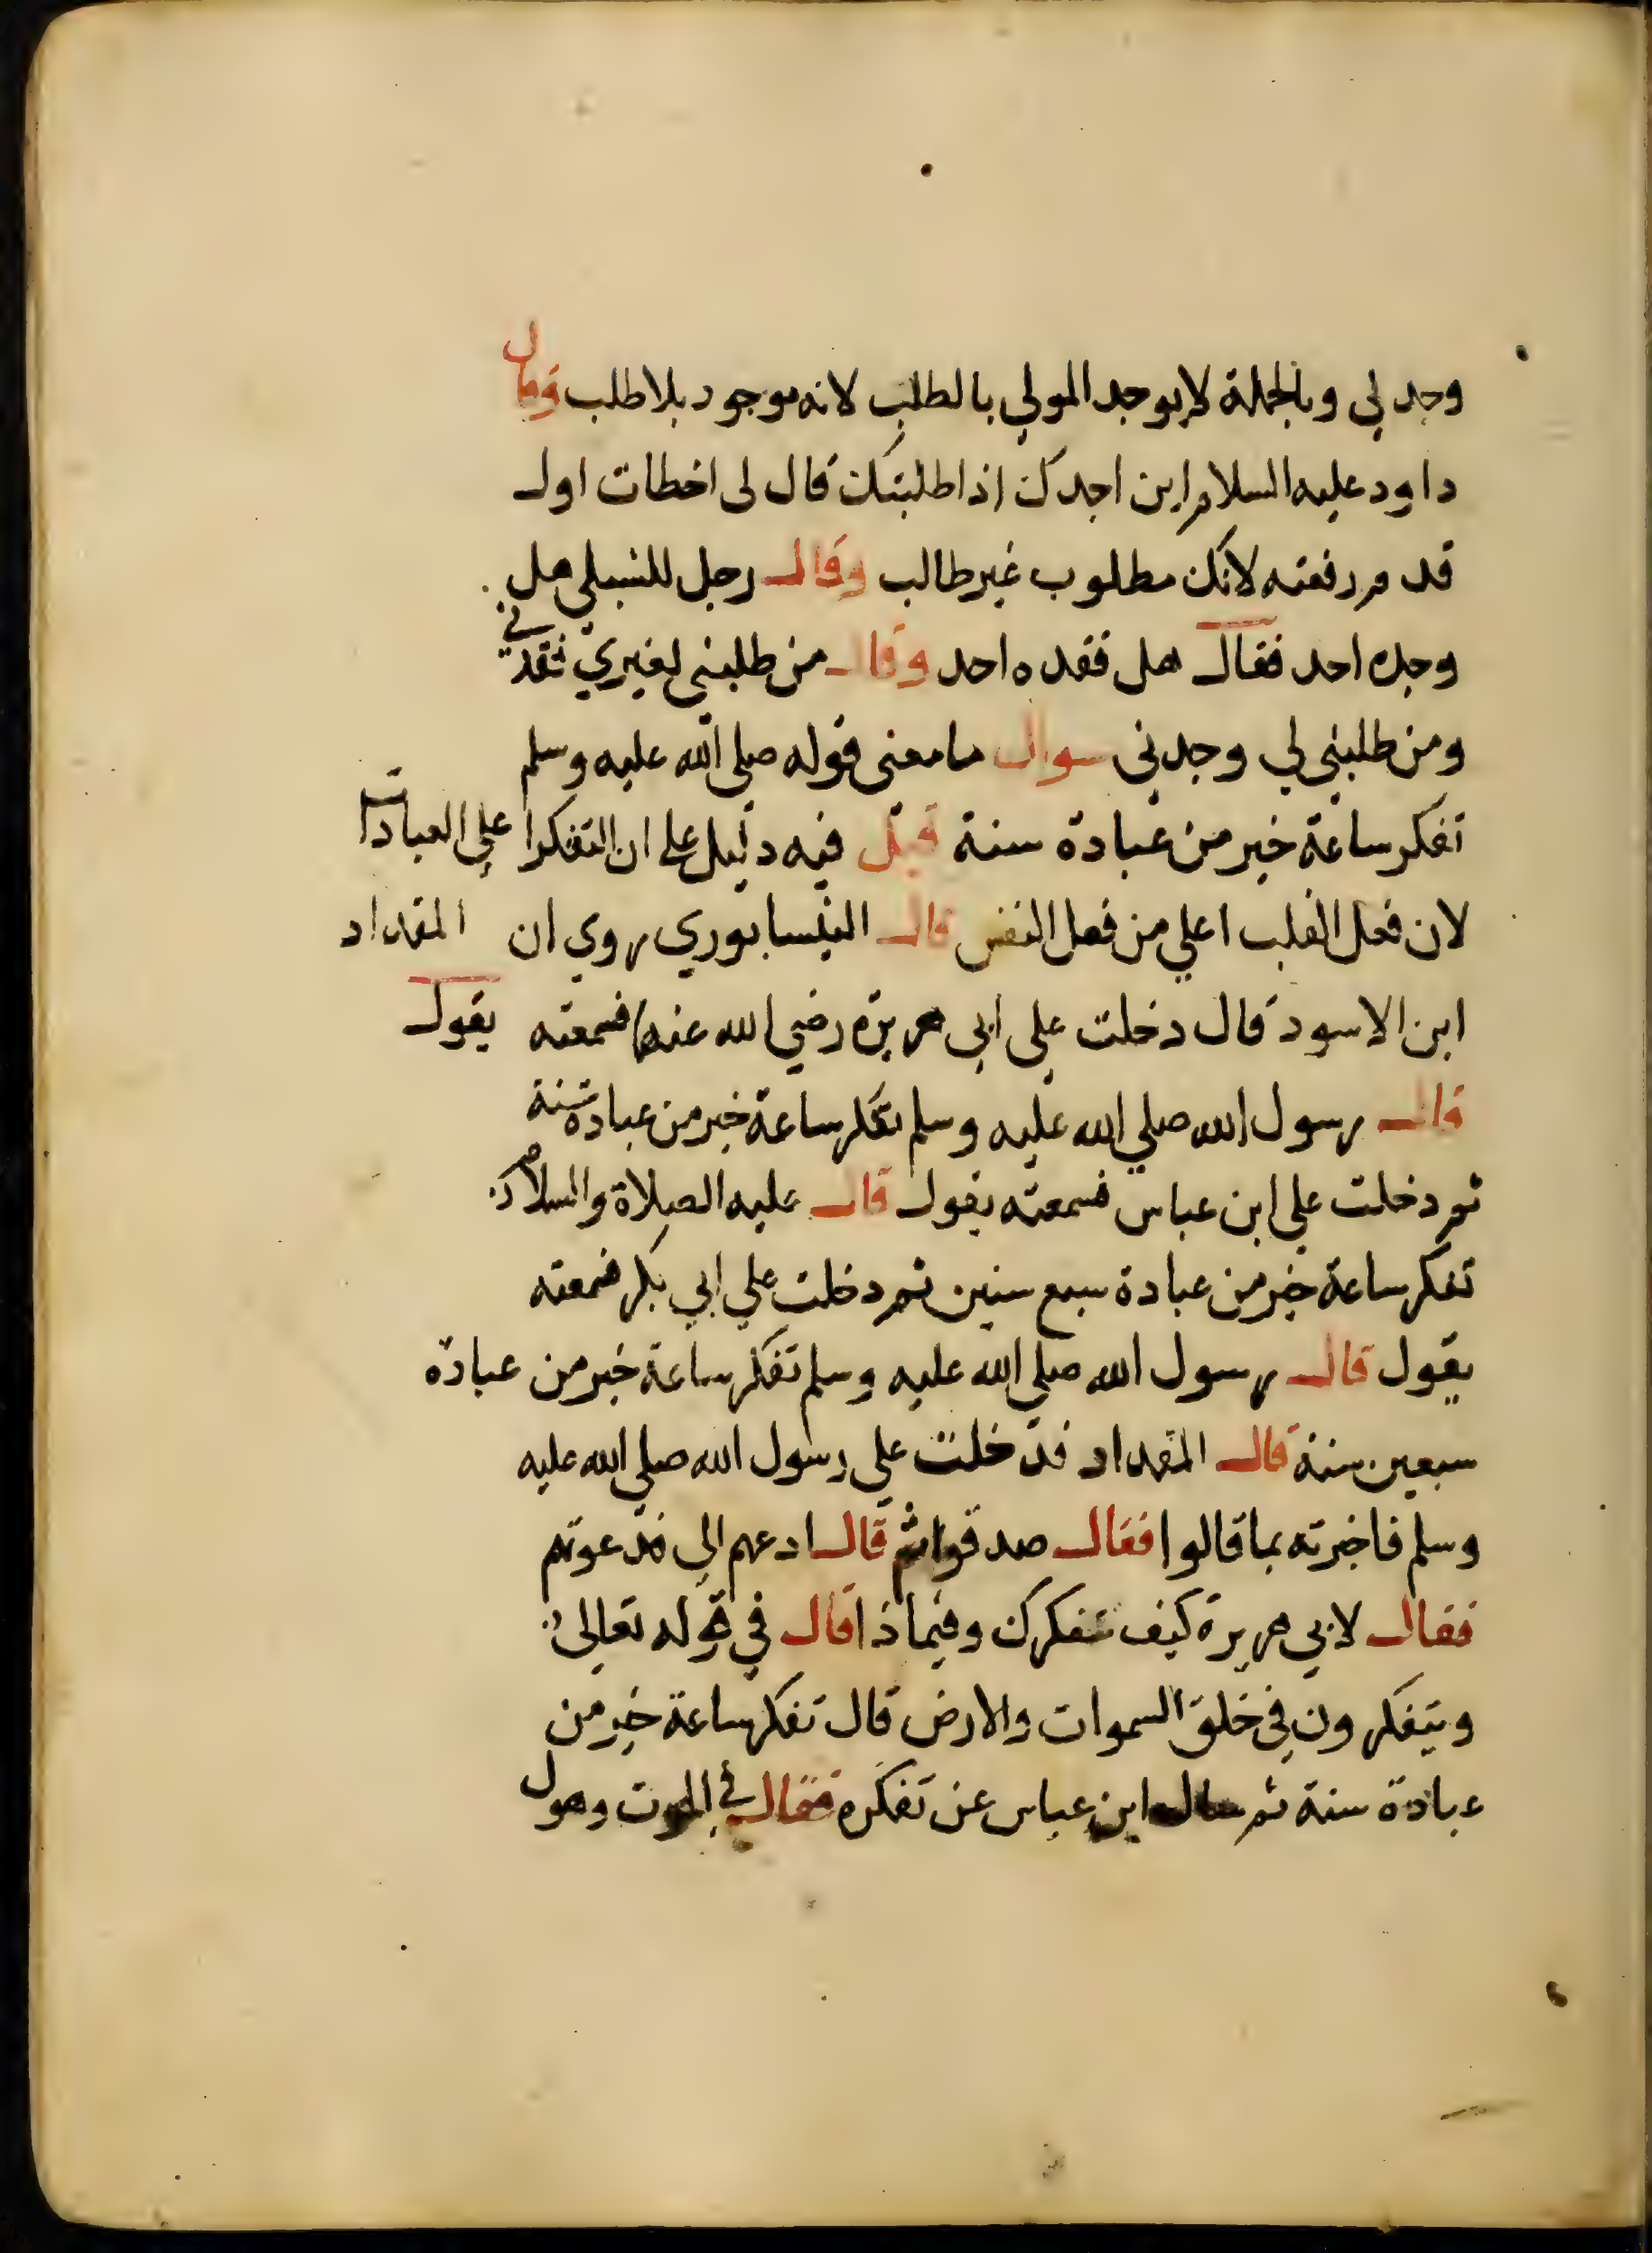 وجد لي وبالجملة لا يوجد المولي بالطلب لانه موجود بلا طلب وقال
داود عليه السلام اين اجدك اذا طلبتك قال لى اخطات اول
قدم رفعته لانك مطلوب غير طالب وقال رجل للشبلي هل
وجده احد فقال هل فقده احد وقال من طلبني لغيري فقدني
ومن طلبني لي وجدني سوال ما معنى قوله صلى الله عليه وسلم
تفكر ساعة خير من عبادة سنة قيل فيه دليل على ان التفكر اعلي العبادات
لان فعل القلب اعلي من فعل النفس قال النيسابوري روي ان المقداد
ابن الاسود قال دخلت على ابي هريرة رضي الله عنه فسمعته يقول
قال رسول الله صلي الله عليه وسلم تفكر ساعة خير من عبادة سنة
ثم دخلت على ابن عباس فسمعته يقول قال عليه الصلاة والسلام
تفكر ساعة خير من عبادة سبع سنين ثم دخلت علي ابي بكر فسمعته
يقول قال رسول الله صلى الله عليه وسلم تفكر ساعة خير من عبادة
سبعين سنة قال المقداد فدخلت على رسول الله صلي الله عليه
وسلم فاخبرته بما قالوا فقال صدقوا ثم قال ادعهم الي فدعوتهم
فقال لابي هريرة كيف تفكرك وفيما ذا قال في قوله تعالى
ويتفكرون في خلق السموات والارض قال تفكر ساعة خير من
عبادة سنة ثم سال ابن عباس عن تفكره فقال في الموت وهول